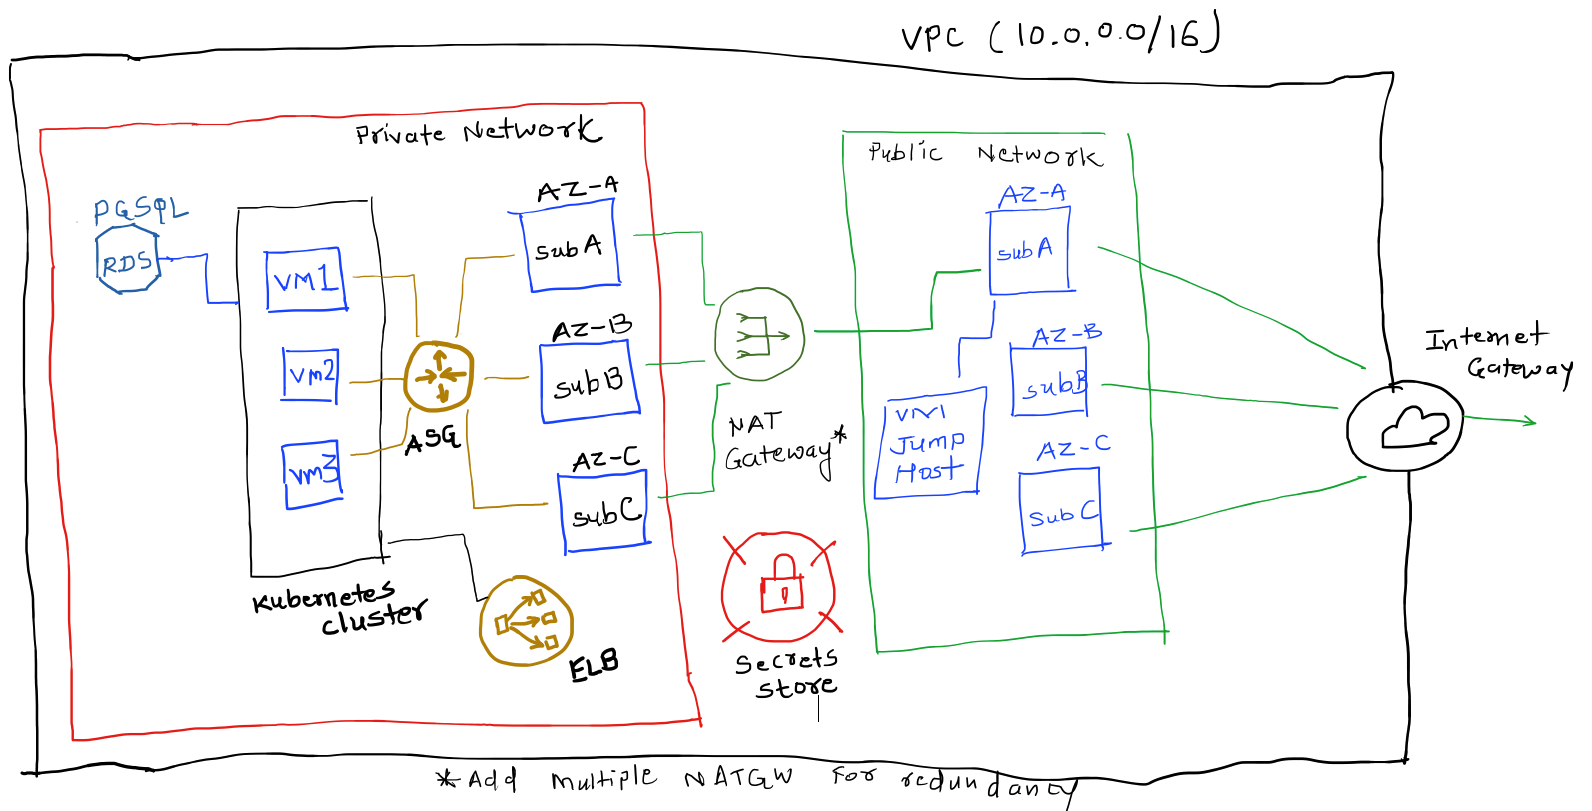 VPC (10.0.0.0/16)
Private Network
PGSQL
RDS
vm1
vm2
vm3
Kubernetes
cluster
ASG
ELB
AZ-A
subA
AZ-B
subB
AZ-C
subC
NAT
Gateway*
Secrets
store
Public Network
AZ-A
subA
AZ-B
subB
AZ-C
subC
VM1
Jump
Host
Internet
Gateway
*Add multiple NATGW for redundancy